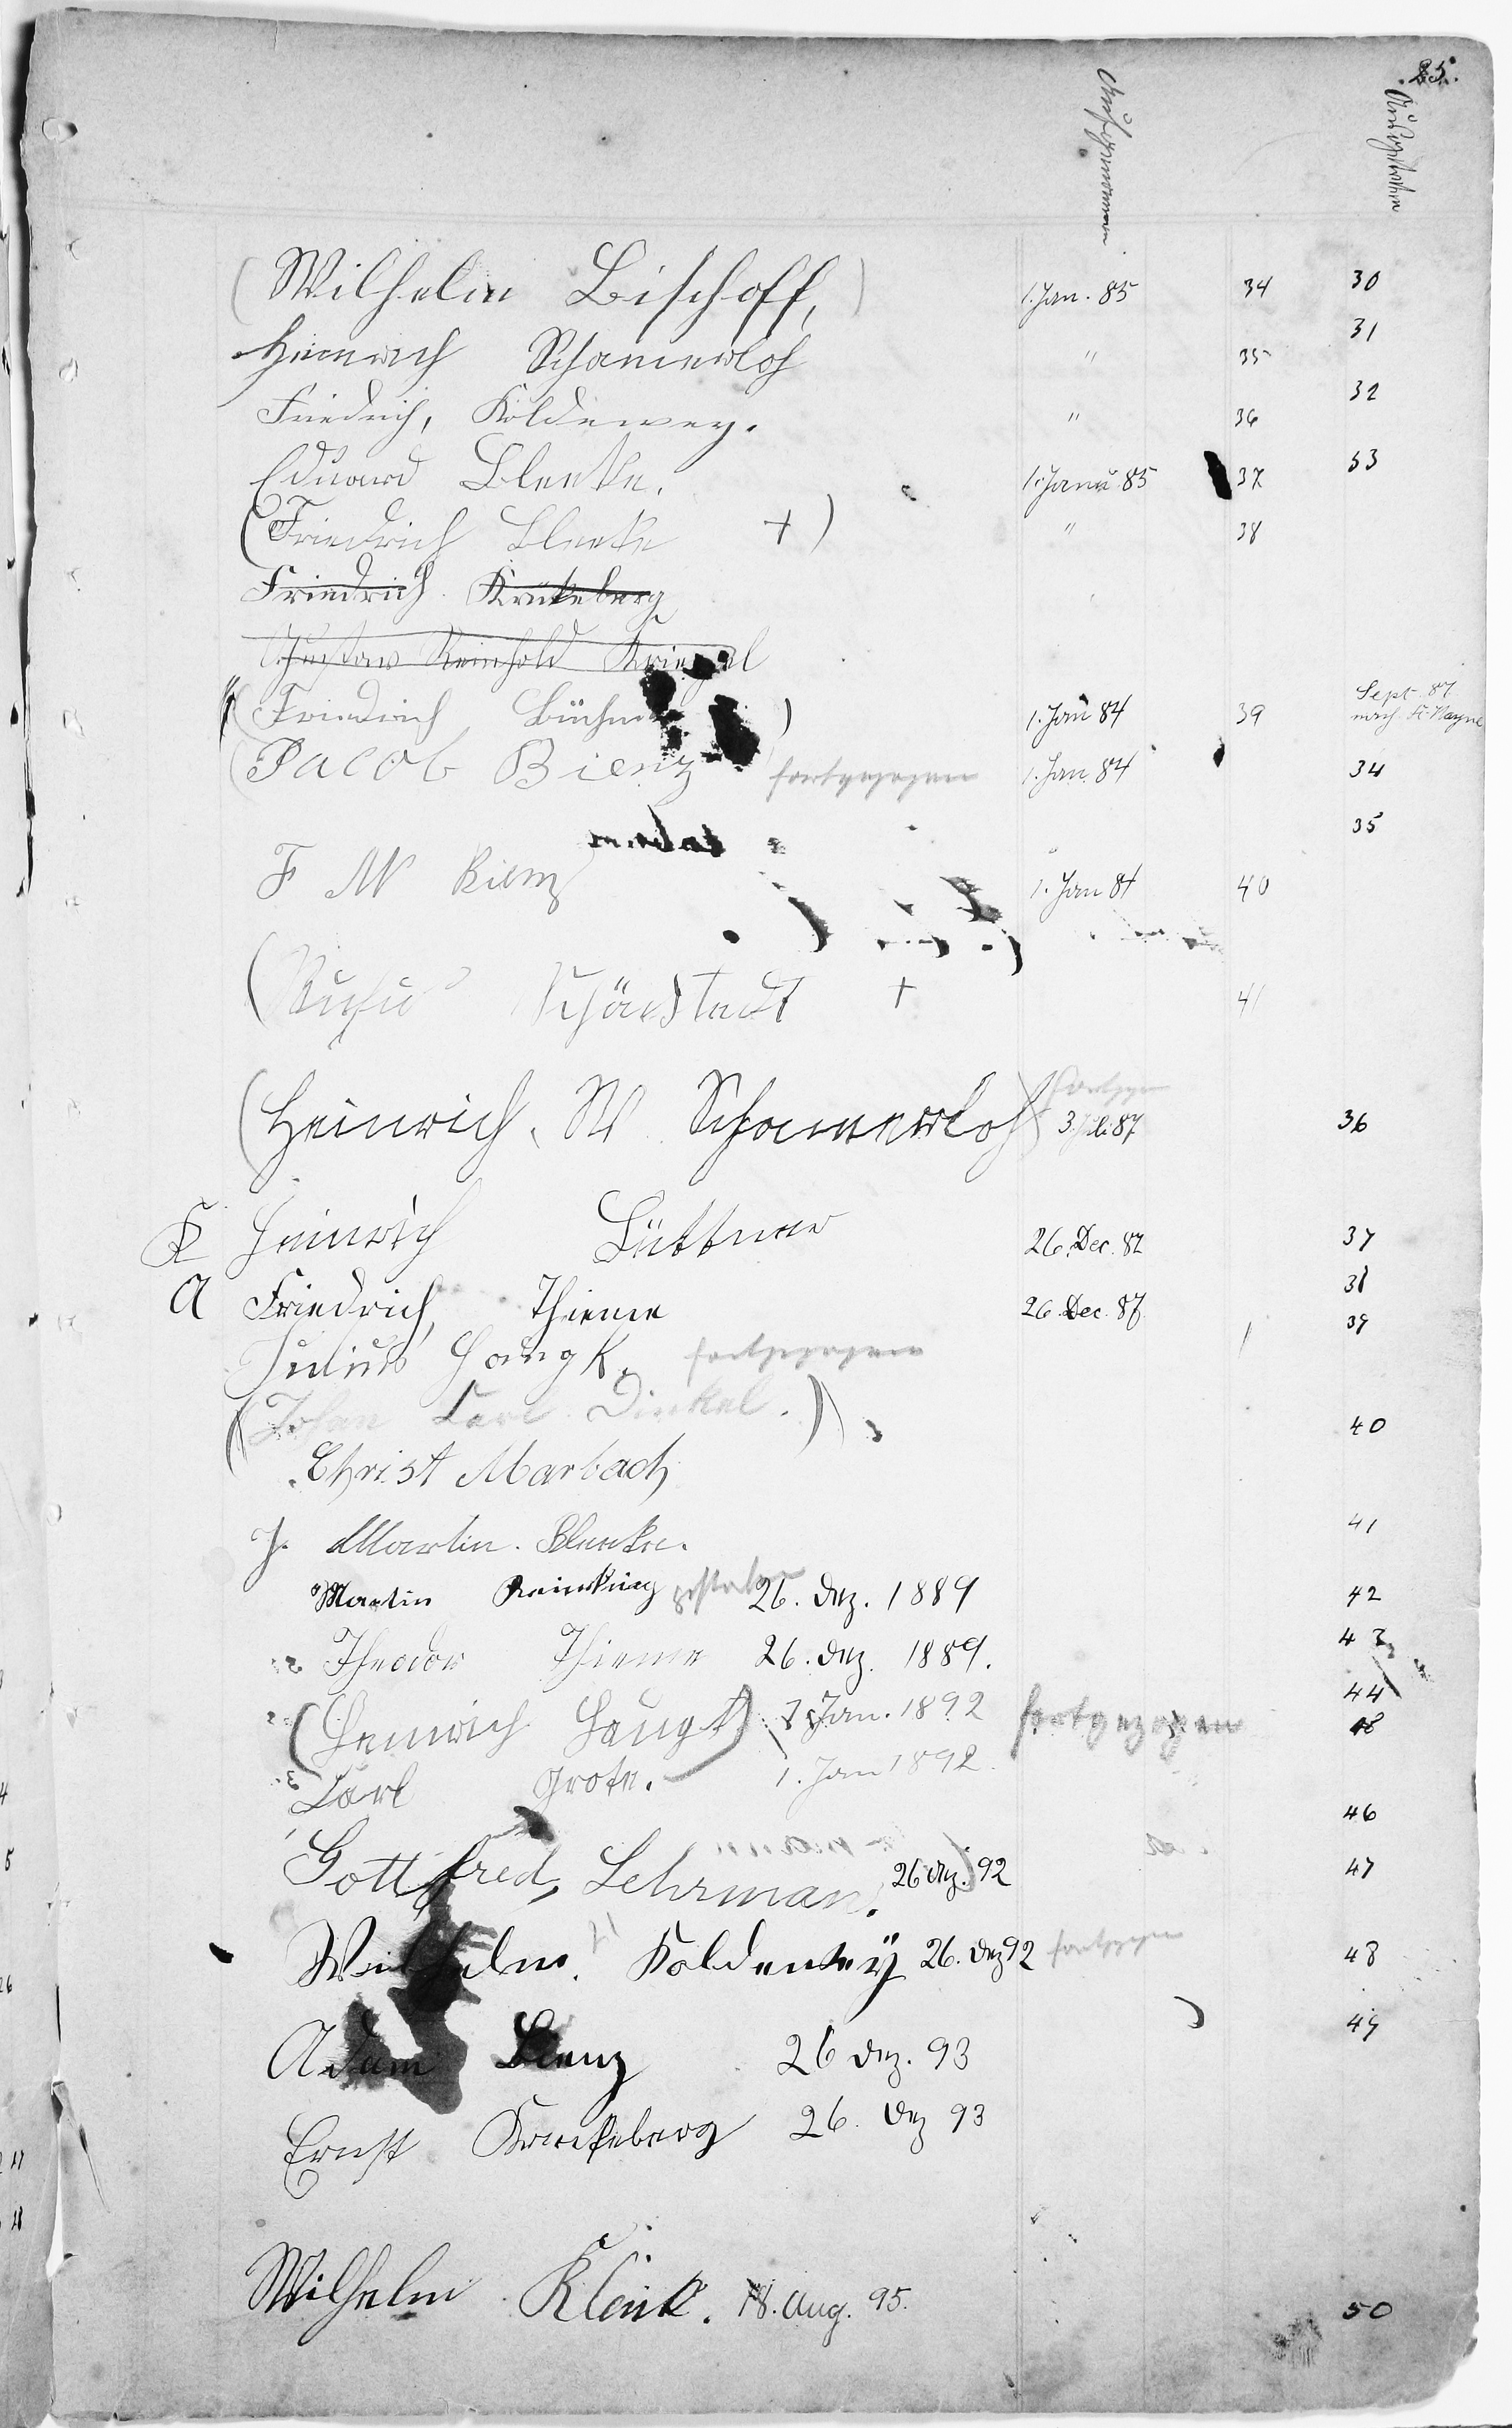 25.
Aufgenommen
(Wilhelm Bischoff,) 1. Jan. 85 34 30
Heinrich Schamerloh " 35 31
Friedrich, Koldewey. " 36 32
Eduard Bleeke. 1. Janu 85 37 33
(Friedrich Bleeke +) " 38
Friedrich Krükeberg
Gustav Reinhold Kriegel
(Friedrich ) 1. Jan 84 39 Sept. 87 nach Ft Wayne
(Jacob Bienz fortgezogen 1. Jan. 84 34
35
F W Bienz 1. Jan 84 40
(Rufus Schädstadt + 41
(Heinrich. W. Schamerloh) 3. Juli 87 36
K Heinrich Büttner 26. Dec. 87 37
A Friedrich, Thieme 26. Dec. 87. 38
Julius Haugk. fortgezogen 39
(Johan Carl Dinkel.) 40
Christ Marbach
J. Martin. Bleeke. 41
Martin Reinking gestorben 26. Dez. 1889 42
Theodor Thieme 26. Dez. 1889. 43
(Heinrich Haugk) 1 Jan. 1892 fortgezogen 44
Carl Grote. 1. Jan 1892.
46
Gottfred, Lehrman. 26 Dez. 92 47
Wilhelm. Koldewey 26. Dez 92 fortgezogen 48
Adam Bienz 26 Dez. 93 49
Ernst Kruckeberg 26. Dez 93
Wilhelm Klenk. 18. Aug. 95. 50